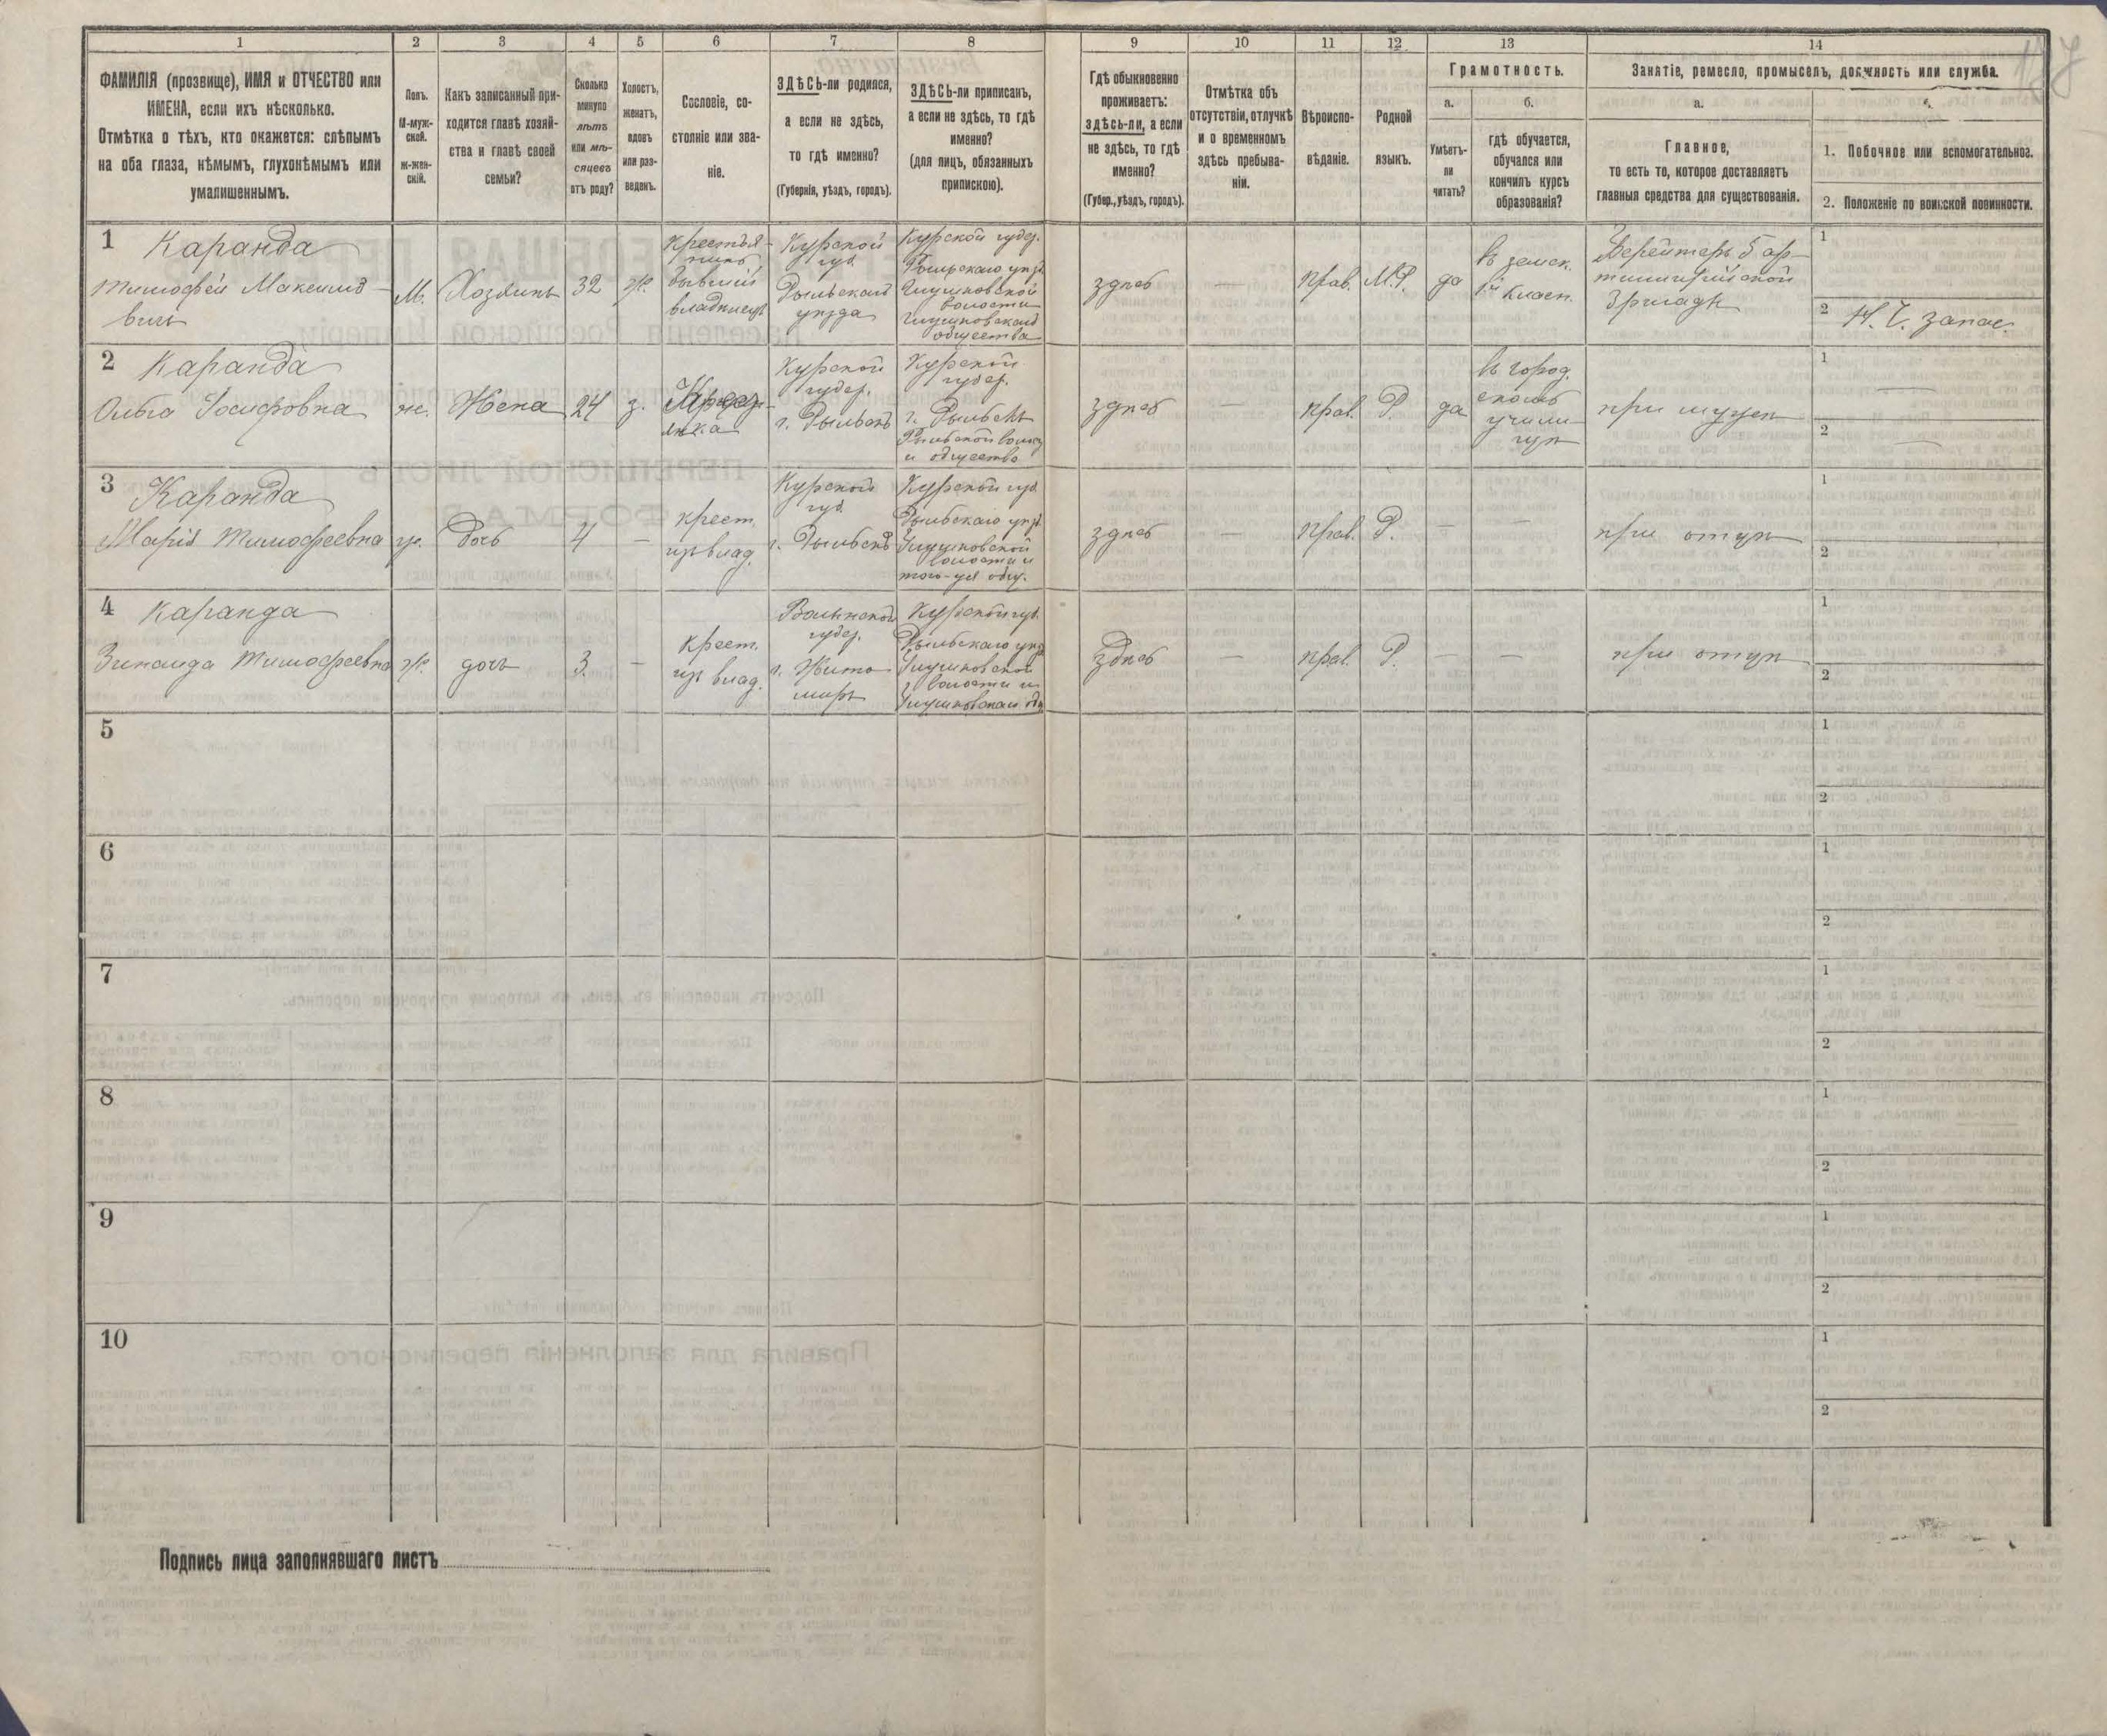 1 2 3 4 5 6 7 8 9 10 11 12 13 14
ФАМИЛІЯ (прозвище), ИМЯ и ОТЧЕСТВО или
ИМЕНА, если ихъ нѣсколько.
Отмѣтка о тѣхъ, кто окажется: слѣпымъ
на оба глаза, нѣмымъ, глухонѣмымъ или
умалишеннымъ.
Полъ.
М-муж-
ской.
ж-жен-
скій.
Какъ записанный при-
ходится главѣ хозяй-
ства и главѣ своей
семьи?
Сколько
минуло
лѣтъ
или мѣ-
сяцевъ
отъ роду?
Холостъ,
женатъ,
вдовъ
или раз-
веденъ.
Сословіе, со-
стояніе или зва-
ніе.
ЗДѢСЬ-ли родился,
а если не здѣсь,
то гдѣ именно?
(Губернія, уѣздъ, городъ).
ЗДѢСЬ-ли приписанъ,
а если не здѣсь, то гдѣ
именно?
(для лицъ, обязанныхъ
припискою).
Гдѣ обыкновенно
проживаетъ:
здѣсь-ли, а если
не здѣсь, то гдѣ
именно?
(Губер., уѣздъ, городъ).
Отмѣтка объ
отсутствіи, отлучкѣ
и о временномъ
здѣсь пребыва-
ніи.
Вѣроиспо-
вѣданіе.
Родной
языкъ.
Грамотность.
а.
Умѣетъ-
ли
читать?
б.
гдѣ обучается,
обучался или
кончилъ курсъ
образованія?
Занятіе, ремесло, промыселъ, должность или служба.
а.
Главное,
то есть то, которое доставляетъ
главныя средства для существованія.
1. Побочное или вспомогательное.
2. Положеніе по воинской повинности.
1
Каранда
Тимофей Максимо-
вичъ
М.
Хозяинъ
32
ж.
Крестья-
нинъ
бывшій
владѣльч.
Курской
губ.
Рыльскаго
уѣзда
Курской губер.
Рыльскаго уѣзд.
Глушковской
волости
Глушковскаго
общества
здѣсь
—
Прав.
М.Р.
да
въ земск.
1й класн.
Берейторъ 5 ар-
тиллерійской
бригады
1
2 Н. Ч. запас.
2
Каранда
Ольга Іосифовна
ж.
Жена
24
з.
Курской
губер.
г. Рыльскъ
Курской
губер.
г. Рыльскъ
и общество
здѣсь
—
прав.
Р.
да
въ город.
скомъ
учили-
щѣ
при мужѣ
1 —
2 —
3
Каранда
Марія Тимофеевна
ж.
дочь
4
—
крест.
изъ влад.
Курской
губ.
г. Рыльскъ
Курской губ.
Рыльскаго уѣзд.
Глушковской
волости и
того-же общ.
здѣсь
—
Прав.
Р.
— —
при отцѣ
1
2
4
Каранда
Зинаида Тимофеевна
ж.
дочь
3.
—
крест.
изъ влад.
Волынской
губер.
г. Жито-
миръ
Курской губ.
Рыльскаго уѣзд.
Глушковской
волости и
Глушковскаго общ.
здѣсь
—
прав.
Р.
— —
при отцѣ
1
2
5
1
2
6
1
2
7
1
2
8
1
2
9
1
2
10
1
2
Подпись лица заполнявшаго листъ